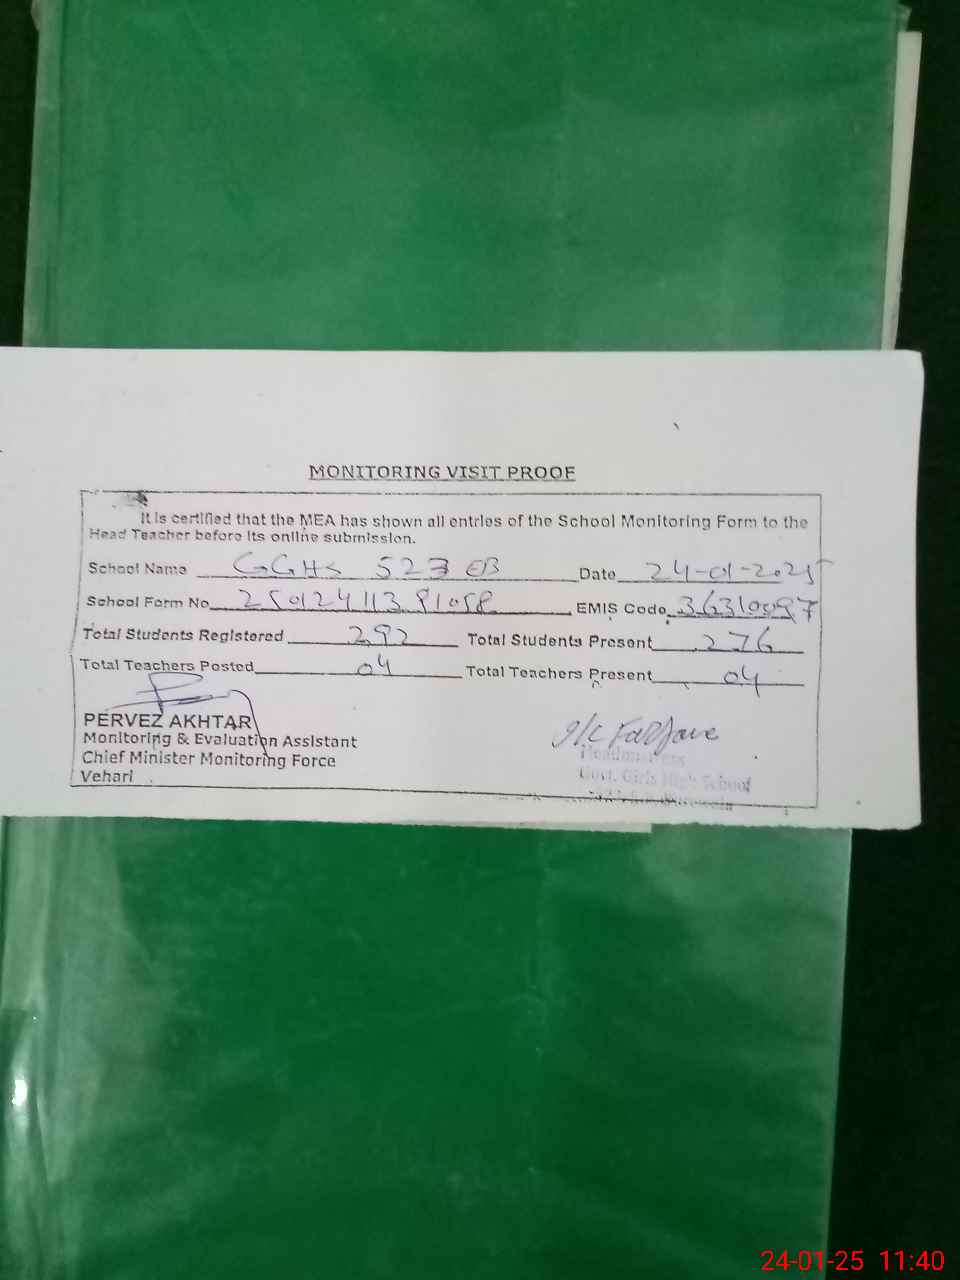 MONITORING VISIT PROOF
It is certified that the MEA has shown all entries of the School Monitoring Form to the
Head Teacher before its online submission.
School Name GGHS 523 EB Date 24-01-2025
School Form No. EMIS Code 36310097
Total Students Registered 292 Total Students Present 276
Total Teachers Posted 04 Total Teachers Present 04
PERVEZ AKHTAR
Monitoring & Evaluation Assistant
Chief Minister Monitoring Force
Vehari
Headmistress
Govt. Girls High School
24-01-25 11:40